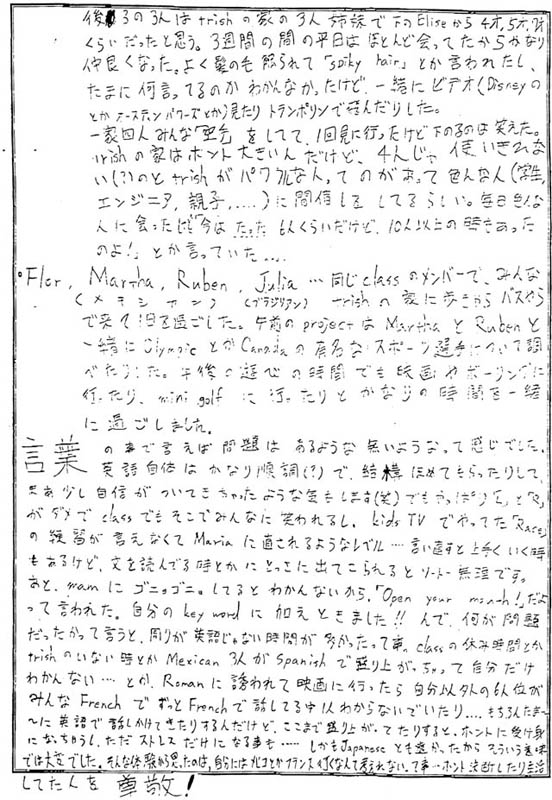 後ろの3人はtrishの家の3人姉妹で下のEliseから4才、5才、7才
くらいだったと思う。3週間の間の平日はほとんど会ってたからかなり
仲良くなった。よく髪の毛触られて「spiky hair」とか言われたし、
たまに何言ってるのかわかんなかったけど、一緒にビデオ(Disneyの
とかオースティンパワーズとか)見たりトランポリンで遊んだりした。
一家四人みんな「空手」をしてて、1回見に行ったけど下の子のは笑えた。
trishの家はホント大きいんだけど、4人じゃ使いきれな
い(?)のとtrishがパワフルな人、てのがあって色んな人(学生、
エンジニア、親子、.....)に間借しをしてるらしい。毎日色んな
人に会ったけど「今はたった6人くらいだけど、10人以上の時もあった
のよ!」とか言っていた....
Flor, Martha, Ruben, Julia…同じclassのメンバーで、みんな
(メキシカン) (ブラジリアン) trishの家に歩きからバスやら
で来て1日を過ごした。午前のprojectはMarthaとRubenと
一緒にOlympicとかCanadaの有名なスポーツ選手について調
べたりした。午後の遊びの時間でも映画やボーリングに
行ったり、mini golfに行ったりとかなりの時間を一緒
に過ごしました。
言葉の事で言えば問題はあるような無いようなって感じでした。
英語自体はかなり順調(?)で、結構ほめてもらったりして、
まあ少し自信がついてきちゃったような気もします(笑)でもやっぱり「L」と「R」
がダメでclassでもそこでみんなに笑われるし、kids TVでやってた「Race」
の練習が言えなくてMariaに直されるようなレベル…言い直すと上手くいく時
もあるけど、文を読んでる時とかにとっさに出てこられるとソートー無理です。
あと、mamにゴニョゴニョしてるとわかんないから、「Open your mouth!」だよ
って言われた。自分のkey wordに加えときました!!んで、何が問題
だったかって言うと、周りが英語じゃない時間が多かったって事。classの休み時間とか
trishのいない時とかMexican 3人がSpanishで盛り上がっちゃって自分だけ
わかんない…とか、Romanに誘われて映画に行ったら自分以外の6人位が
みんなFrenchでずっとFrenchで話してる中1人わからないでいたり....もちろんたま
〜に英語で話しかけてきたりするんだけど、ここまで盛り上がってたりすると、ホントに受け身
になっちゃうし、ただストレスだけになる事も……しかもJapaneseとも違かったからそういう意味
では大変でした。そんな体験から思ったのは、自分にはメキシコとかフランスへ行くなんて考えれない、って事…ホント決断したり生活
してた人を尊敬!